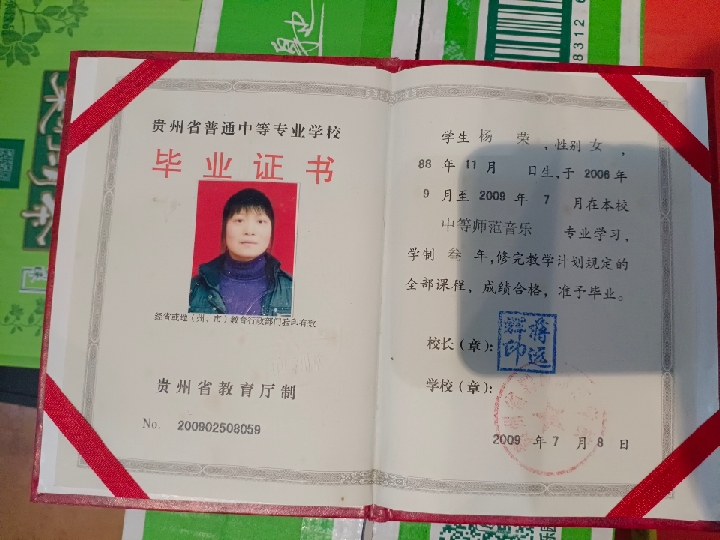 贵州省普通中等专业学校
毕业证书
经省或地(州、市)教育行政部门验印有效
贵州省教育厅制
No. 200902508059
学生 杨 荣,性别 女,
88 年 11 月 日生,于 2006 年
9 月至 2009 年 7 月在本校
中等师范音乐 专业学习,
学制 叁 年,修完教学计划规定的
全部课程,成绩合格,准予毕业。
校长(章):
学校(章):
2009 年 7 月 8 日
8312 6